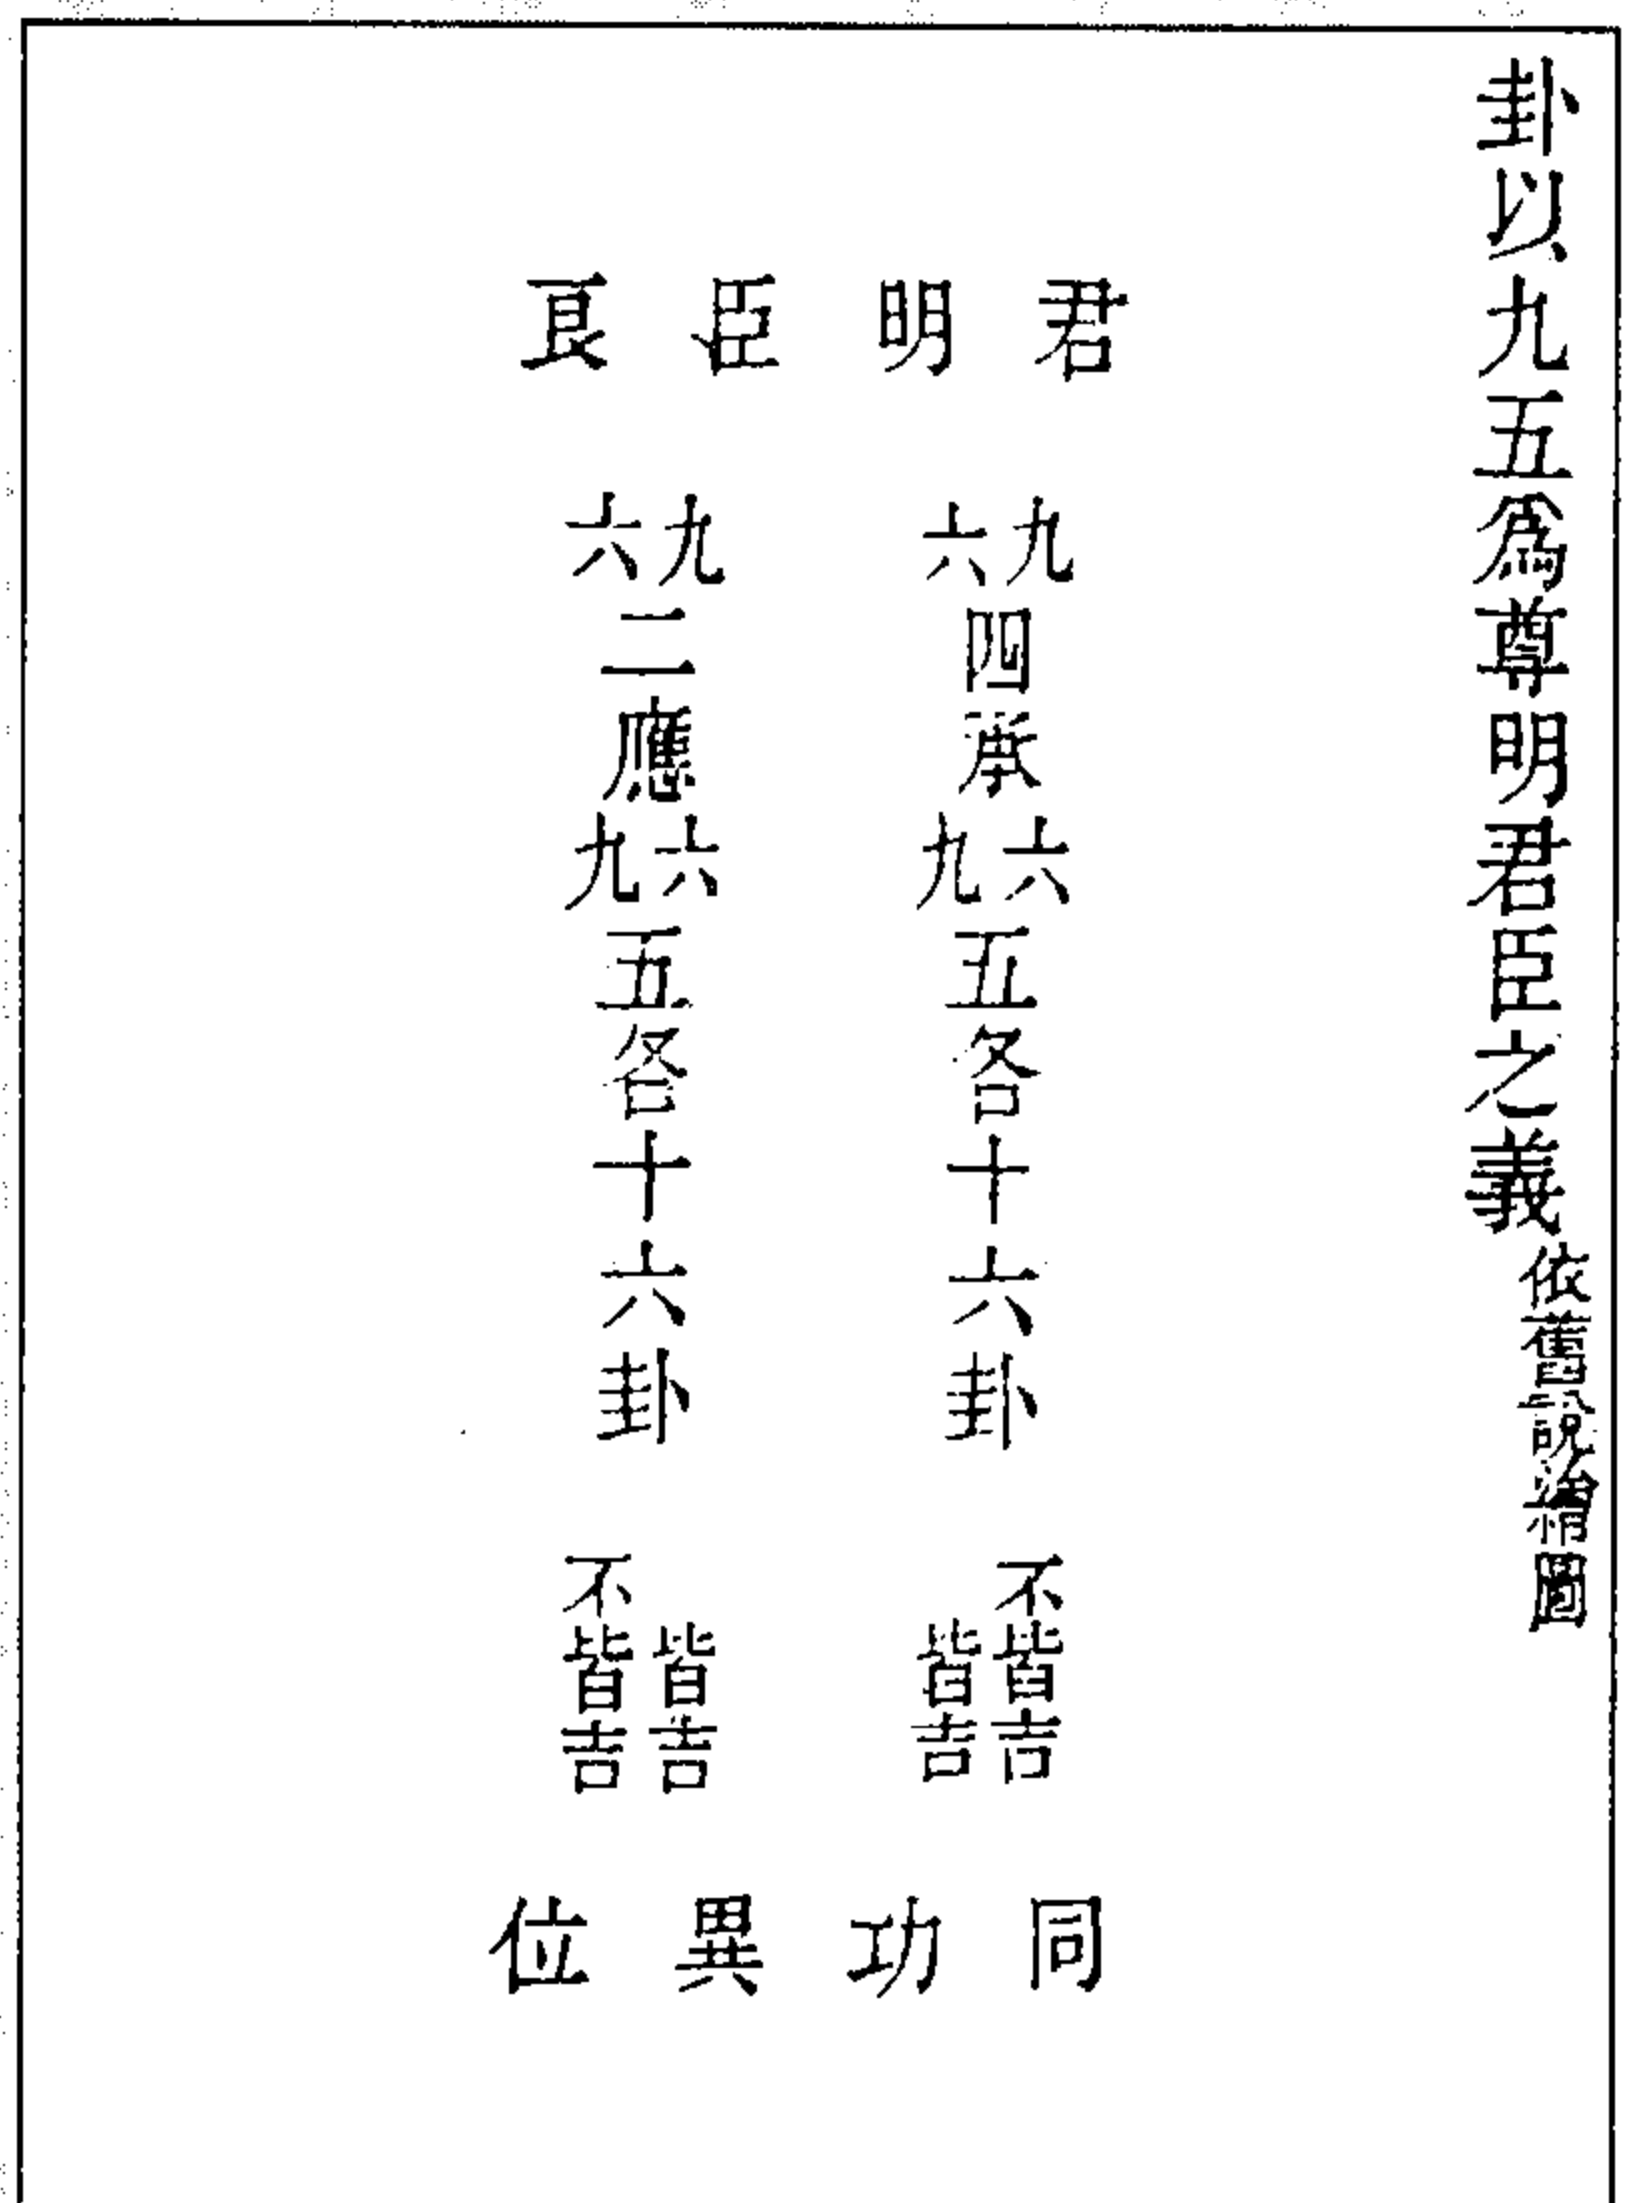 卦以九五爲尊明君臣之義依舊說圖
君明臣良
九六四承六九五各十六卦
不皆吉
皆吉
九六二應六九五各十六卦
皆吉
不皆吉
同功異位